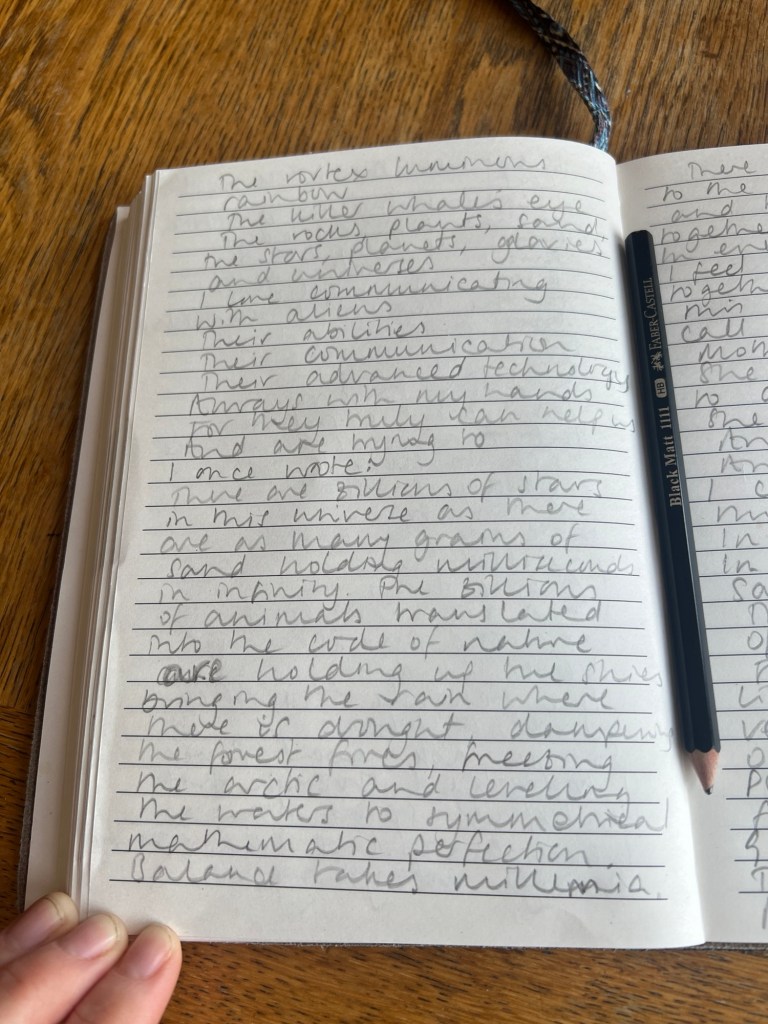 The vortex luminous
rainbow
The killer whale's eye
The rocks, plants, sand
the stars, planets, galaxies
and universes
I love communicating
with aliens
Their abilities
Their communication
Their advanced technology
Always with my hands
For they truly can help us
And are trying to
I once wrote:
There are Billions of stars
in this universe as there
are as many grains of
sand holding milliseconds
in infinity. The Billions
of animals translated
into the code of nature
are holding up the skies
bringing the rain where
there is drought, dampening
the forest fires, freezing
the arctic and leveling
the waters to symmetrical
mathematic perfection.
Balance takes millennia.
There
to the
and
I feel
call
She
to
She
I
In
In
Black Matt 1111 HB FABER-CASTELL